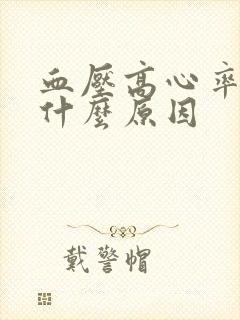 血壓高心率
什麼原因
戴警帽